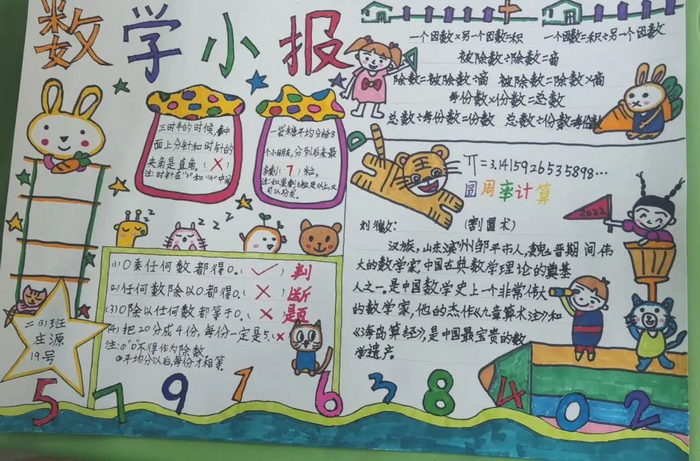 数学小报
一个因数×另一个因数=积 一个因数=积÷另一个因数
被除数÷除数=商
除数=被除数÷商 被除数=除数×商
每份数×份数=总数
总数÷每份数=份数 总数÷份数=每份数
三时半的时候,钟
面上分针和时针的
夹角是直角。(×)
注:时针在"3"和"4"中间
一袋糖平均分给8
个小朋友,分到后来最
多剩(7)粒。
π=3.1415926535898...
圆周率计算
刘徽: (割圆术)
汉族,山东滨州邹平市人,魏晋期间伟
大的数学家,中国古典数学理论的奠基
人之一。是中国数学史上一个非常伟大
的数学家,他的杰作《九章算术注》和
《海岛算经》,是中国最宝贵的数
学遗产。
2022
判断题
(1)0乘任何数都得0。(✓)
(2)任何数除以0都得0。(×)
(3)0除以任何数都等于0。(×)
(4)把20分成4份,每份一定是5。(×)
注:①"0"不得作为除数
②平均分以后,每份才相等
二(3)班
庄源
19号
5 7 9 1 6 3 8 4 0 2